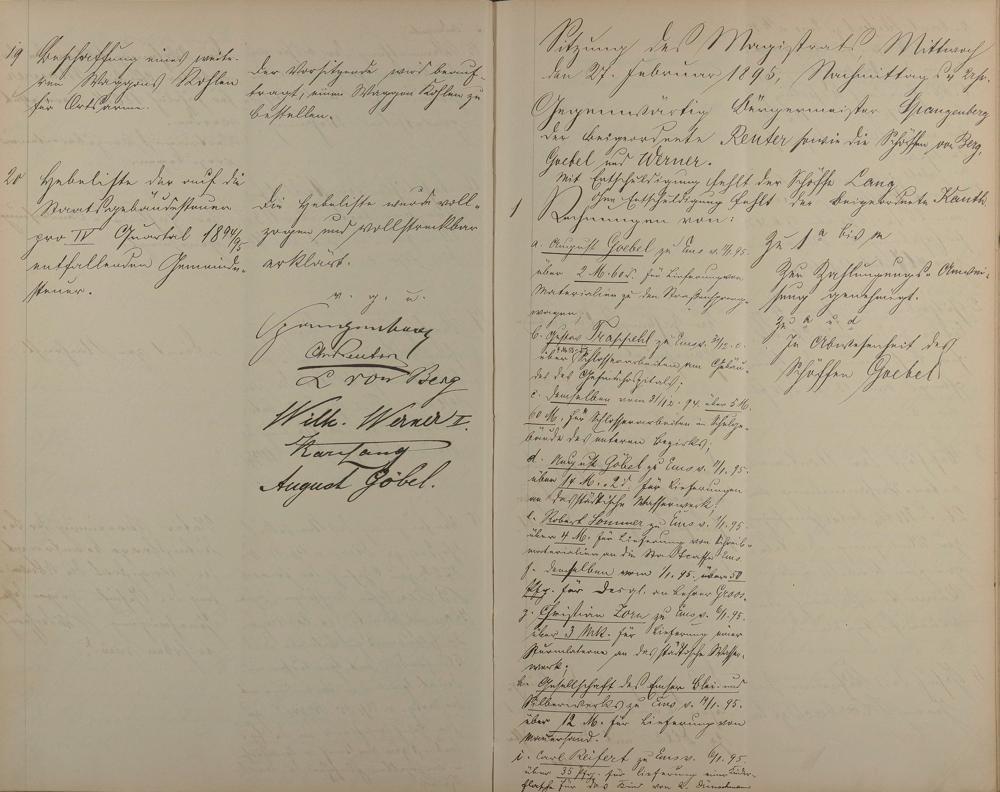 19
Beschaffung eines weite-
ren Waggons Kohlen
für Ortsarme.
Der Vorsitzende wird beauf-
tragt, einen Waggon Kohlen zu
bestellen.
20
Hebeliste der auf die
Staatsgebäudesteuer
pro IV Quartal 1894/95
entfallenden Gemeinde-
steuer.
Die Hebeliste wurde voll-
zogen und vollstreckbar
erklärt.
v. g. u.
Spangenberg
L von Berg
Wilh. Werner I.
Karl Lang
August Göbel.
Sitzung des Magistrats Mittwoch
den 27. Februar 1895, Nachmittags Uhr.
Gegenwärtig Bürgermeister Spangenberg
der Beigeordnete Reuter sowie die Schöffen von Berg,
Goebel und Werner.
Mit Entschuldigung fehlt der Schöffe Lang
Ohne Entschuldigung fehlt der Beigeordnete Kauth
1
Rechnungen von:
a. August Goebel zu Ems v. /1. 95
über 2 M. 60 für Lieferung von
Materialien zu den Straßenspreng-
wagen;
b. Gustav zu Ems v. /12. c.
über Schlosserarbeiten am Gebäu-
de des
c. demselben vom 31/12. 94. über 5 M.
60 für Schlosserarbeiten im Schulge-
bäude des unteren Bezirks;
d. August Göbel zu Ems v. /1. 95.
über 14 M. 2 für Lieferungen
an das städtische Wasserwerk;
e. Robert Sommer zu Ems v. 1/1. 95.
über 4 M. für Lieferung von Schreib-
materialien an die Stadtkasse Ems
f. demselben vom 1/1. 95. über 50
Pfg. für desgl. an Lehrer Groos.
g. Christian Zorn zu Ems v. 6/1. 95.
über 3 Mk. für Lieferung einer
Sturmlaterne an das städtische Wasser-
werk;
h. Gesellschaft des Emser Blei- und
Silberwerks zu Ems v. /1. 95.
über 12 M. für Lieferung von
Mauersand.
i. Carl Reifert zu Ems v. 6/1. 95.
über 35 Pfg. für Lieferung einer
flasche für das Kind von
Zu 1 a bis m
Zur Zahlung Anwei-
sung genehmigt.
Zu a u. d
In Abwesenheit des
Schöffen Goebel